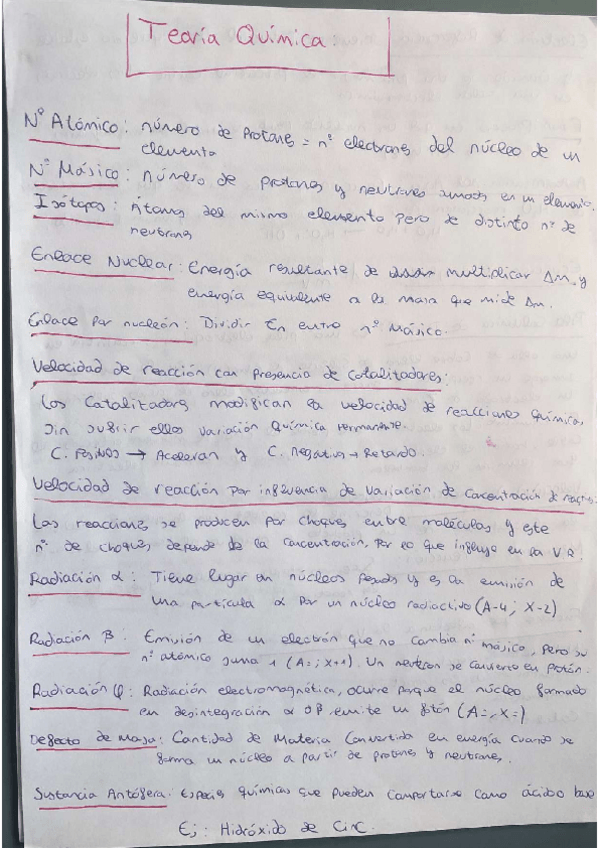 Teoría Química:
Nº Atómico: número de protones = nº electrones del núcleo de un
elemento
Nº Másico: número de protones y neutrones sumados en un elemento.
Isótopos: átomos del mismo elemento pero de distinto nº de
neutrones
Enlace Nuclear: Energía resultante de multiplicar Δm, y
energía equivalente a la masa que mide Δm.
Enlace por nucleón: Dividir En entre nº Másico.
Velocidad de reacción con presencia de catalizadores:
Los Catalizadores modifican la velocidad de reacciones químicas,
sin sufrir ellos variación química permanente.
C. Positivos → Aceleran y C. negativos → Retardo.
Velocidad de reacción por influencia de variación de concentración de reactivos
Las reacciones se producen por choques entre moléculas y este
nº de choques depende de la concentración, por lo que influye en la V.R.
Radiación α: Tiene lugar en núcleos pesados y es la emisión de
una partícula α por un núcleo radiactivo (A-4; X-2)
Radiación β: Emisión de un electrón que no cambia nº másico, pero su
nº atómico suma 1 (A=; X+1). Un neutrón se convierte en protón.
Radiación φ: Radiación electromagnética, ocurre porque el núcleo formado
en desintegración α o β emite un fotón (A=, X=)
Defecto de masa: Cantidad de Materia Convertida en energía cuando se
forma un núcleo a partir de protones y neutrones.
Sustancia Antófera: Especies químicas que pueden comportarse como ácido base
Ej: Hidróxido de Cinc.